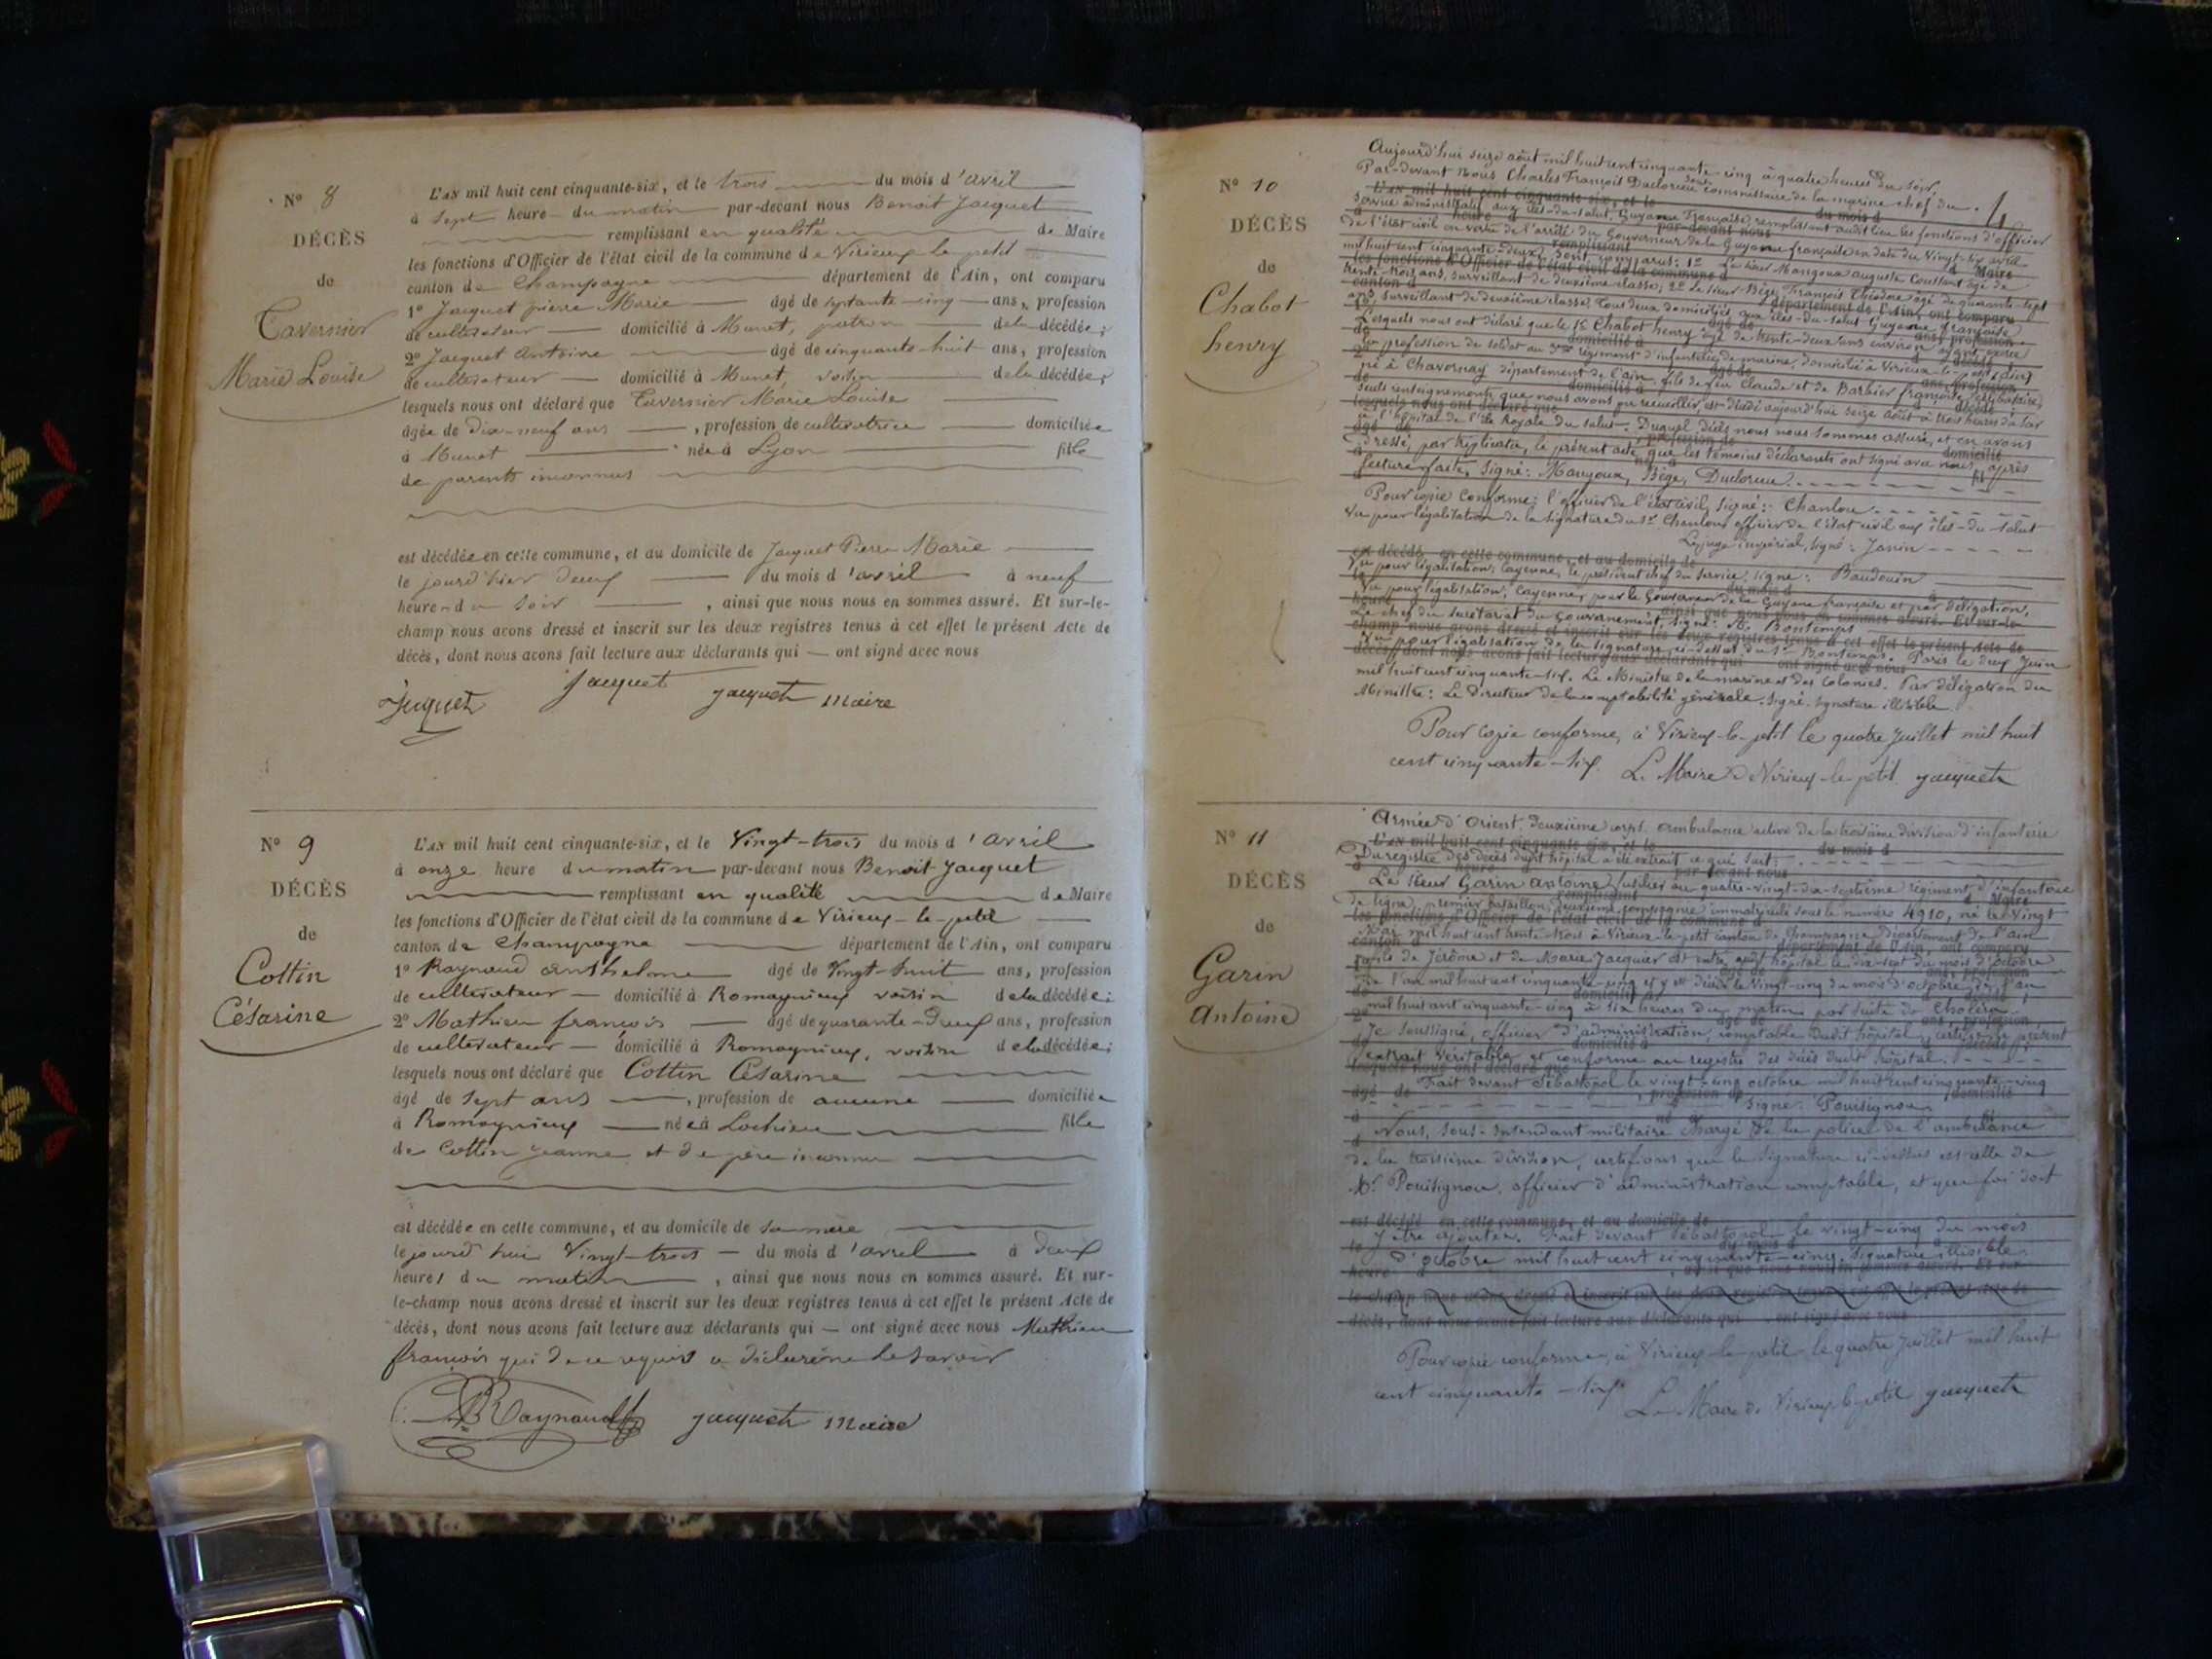 N° 8
DÉCÈS
de
Tavernier
Marie Louise
L'AN mil huit cent cinquante-six, et le trois du mois d'avril
à sept heure du matin par-devant nous Benoit Jacquet
remplissant en qualité de Maire
les fonctions d'Officier de l'état civil de la commune de Virieux-le-petit
canton de Champagne département de l'Ain, ont comparu
1° Jacquet pierre Marie âgé de septante-cinq ans, profession
de cultivateur domicilié à Munet, patron de la décédée;
2° Jacquet Antoine âgé de cinquante-huit ans, profession
de cultivateur domicilié à Munet, voisin de la décédée;
lesquels nous ont déclaré que Tavernier Marie Louise
âgée de dix-neuf ans, profession de cultivatrice domiciliée
à Munet née à Lyon fille
de parents inconnus
est décédée en cette commune, et au domicile de Jacquet Pierre Marie
le jourd'hier deux du mois d'avril à neuf
heure du soir, ainsi que nous nous en sommes assuré. Et sur-le-
champ nous avons dressé et inscrit sur les deux registres tenus à cet effet le présent Acte de
décès, dont nous avons fait lecture aux déclarants qui — ont signé avec nous
Jacquet Jacquet Jacquet maire
N° 9
DÉCÈS
de
Cottin
Césarine
L'AN mil huit cent cinquante-six, et le Vingt-trois du mois d'avril
à onze heure du matin par-devant nous Benoit Jacquet
remplissant en qualité de Maire
les fonctions d'Officier de l'état civil de la commune de Virieux-le-petit
canton de Champagne département de l'Ain, ont comparu
1° Raynaud anthelme âgé de Vingt-huit ans, profession
de cultivateur — domicilié à Romagnieux voisin de la décédée;
2° Mathieu françois — âgé de quarante-deux ans, profession
de cultivateur — domicilié à Romagnieux, voisin de la décédée;
lesquels nous ont déclaré que Cottin Césarine
âgé de sept ans, profession de aucune domiciliée
à Romagnieux née à Lochieu fille
de Cottin Jeanne et de père inconnu
est décédée en cette commune, et au domicile de sa mère
le jourd'hui Vingt-trois — du mois d'avril à deux
heures du matin, ainsi que nous nous en sommes assuré. Et sur-
le-champ nous avons dressé et inscrit sur les deux registres tenus à cet effet le présent Acte de
décès, dont nous avons fait lecture aux déclarants qui — ont signé avec nous Mathieu
françois qui de ce requis a déclaré ne le savoir
Raynaud Jacquet maire
4
N° 10
DÉCÈS
de
Chabot
henry
Aujourd'hui seize août mil huit cent cinquante-cinq à quatre heures du soir,
Par-devant Nous Charles François Duclorieu sous commissaire de la marine chef du
service administratif aux îles-du-salut, Guyane Française, remplissant audit lieu les fonctions d'officier
de l'état civil en vertu de l'arrêté du Gouverneur de la Guyane française en date du Vingt-six avril
mil huit cent cinquante-deux, sont comparus: 1° Le sieur Mangoux auguste Constant âgé de
trente trois ans, surveillant de deuxième classe; 2° Le sieur Bége François Théodore âgé de quarante-sept
ans, surveillant de deuxième classe, tous deux domiciliés aux îles-du-salut Guyane française
Lesquels nous ont déclaré que le Sr Chabot henry âgé de trente-deux ans environ ayant exercé
la profession de soldat au 3me régiment d'infanterie de marine, domicilié à Virieux-le-petit (ain)
né à Chavornay département de l'ain, fils de feu Claude et de Barbier françoise, célibataire,
seuls renseignements que nous avons pu recueillir, est décédé aujourd'hui seize août à trois heures du soir
à l'hôpital de l'île Royale du salut. Duquel décès nous nous sommes assuré, et en avons
dressé, par triplicata, le présent acte que les témoins déclarants ont signé avec nous, après
lecture faite, signé: Mangoux, Bége, Duclorieu.
Pour copie conforme: l'officier de l'état civil, signé: Chanlou
Vu pour légalisation de la signature du Sr Chanlou officier de l'état civil aux îles-du-salut
Le juge impérial, signé: Janin
Vu pour légalisation; Cayenne, le président chef du service, signé: Baudouin
Vu pour légalisation; Cayenne, pour le Gouverneur de la Guyane française et par délégation,
Le chef du secrétariat du Gouvernement, signé: M. Bontemps
Vu pour légalisation de la signature ci-dessus du Sr Bontemps. Paris le deux Juin
mil huit cent cinquante-six. Le Ministre de la marine et des Colonies. Par délégation du
Ministre: Le directeur de la comptabilité générale. Signé. signature illisible
Pour copie conforme, à Virieux-le-petit le quatre Juillet mil huit
cent cinquante-six. Le Maire de Virieux-le-petit. Jacquet
N° 11
DÉCÈS
de
Garin
Antoine
Armée d'Orient, deuxième corps. ambulance active de la troisième division d'infanterie
Du registre des décès dudit hôpital a été extrait ce qui suit:
Le Sieur Garin antoine, fusilier au quatre-vingt-dix-septième régiment d'infanterie
de ligne, premier bataillon, deuxième compagnie immatriculé sous le numéro 4910, né le Vingt
Mai mil huit cent trente-trois à Virieux-le-petit canton de Champagne Département de l'ain
fils de Jérôme et de Marie Jacquier est entré audit hôpital le dix-sept du mois d'octobre
de l'an mil huit cent cinquante-cinq et y est décédé le Vingt-cinq du mois d'octobre de l'an
mil huit cent cinquante-cinq à six heures du matin par suite de Choléra
Je soussigné, officier d'administration, comptable dudit hôpital, certifie le présent
extrait véritable et conforme au registre des décès dudit hôpital.
Fait devant Sébastopol le vingt-cinq octobre mil huit cent cinquante-cinq
Signé: Pouisignon
Nous, sous-intendant militaire chargé de la police de l'ambulance
de la troisième division, certifions que la signature ci-dessus est celle de
Mr Pouisignon, officier d'administration comptable, et que foi doit
y être ajoutée. Fait devant Sébastopol le vingt-cinq du mois
d'octobre mil huit cent cinquante-cinq. Signature illisible.
Pour copie conforme, à Virieux-le-petit le quatre Juillet mil huit
cent cinquante-six. Le Maire de Virieux-le-petit Jacquet